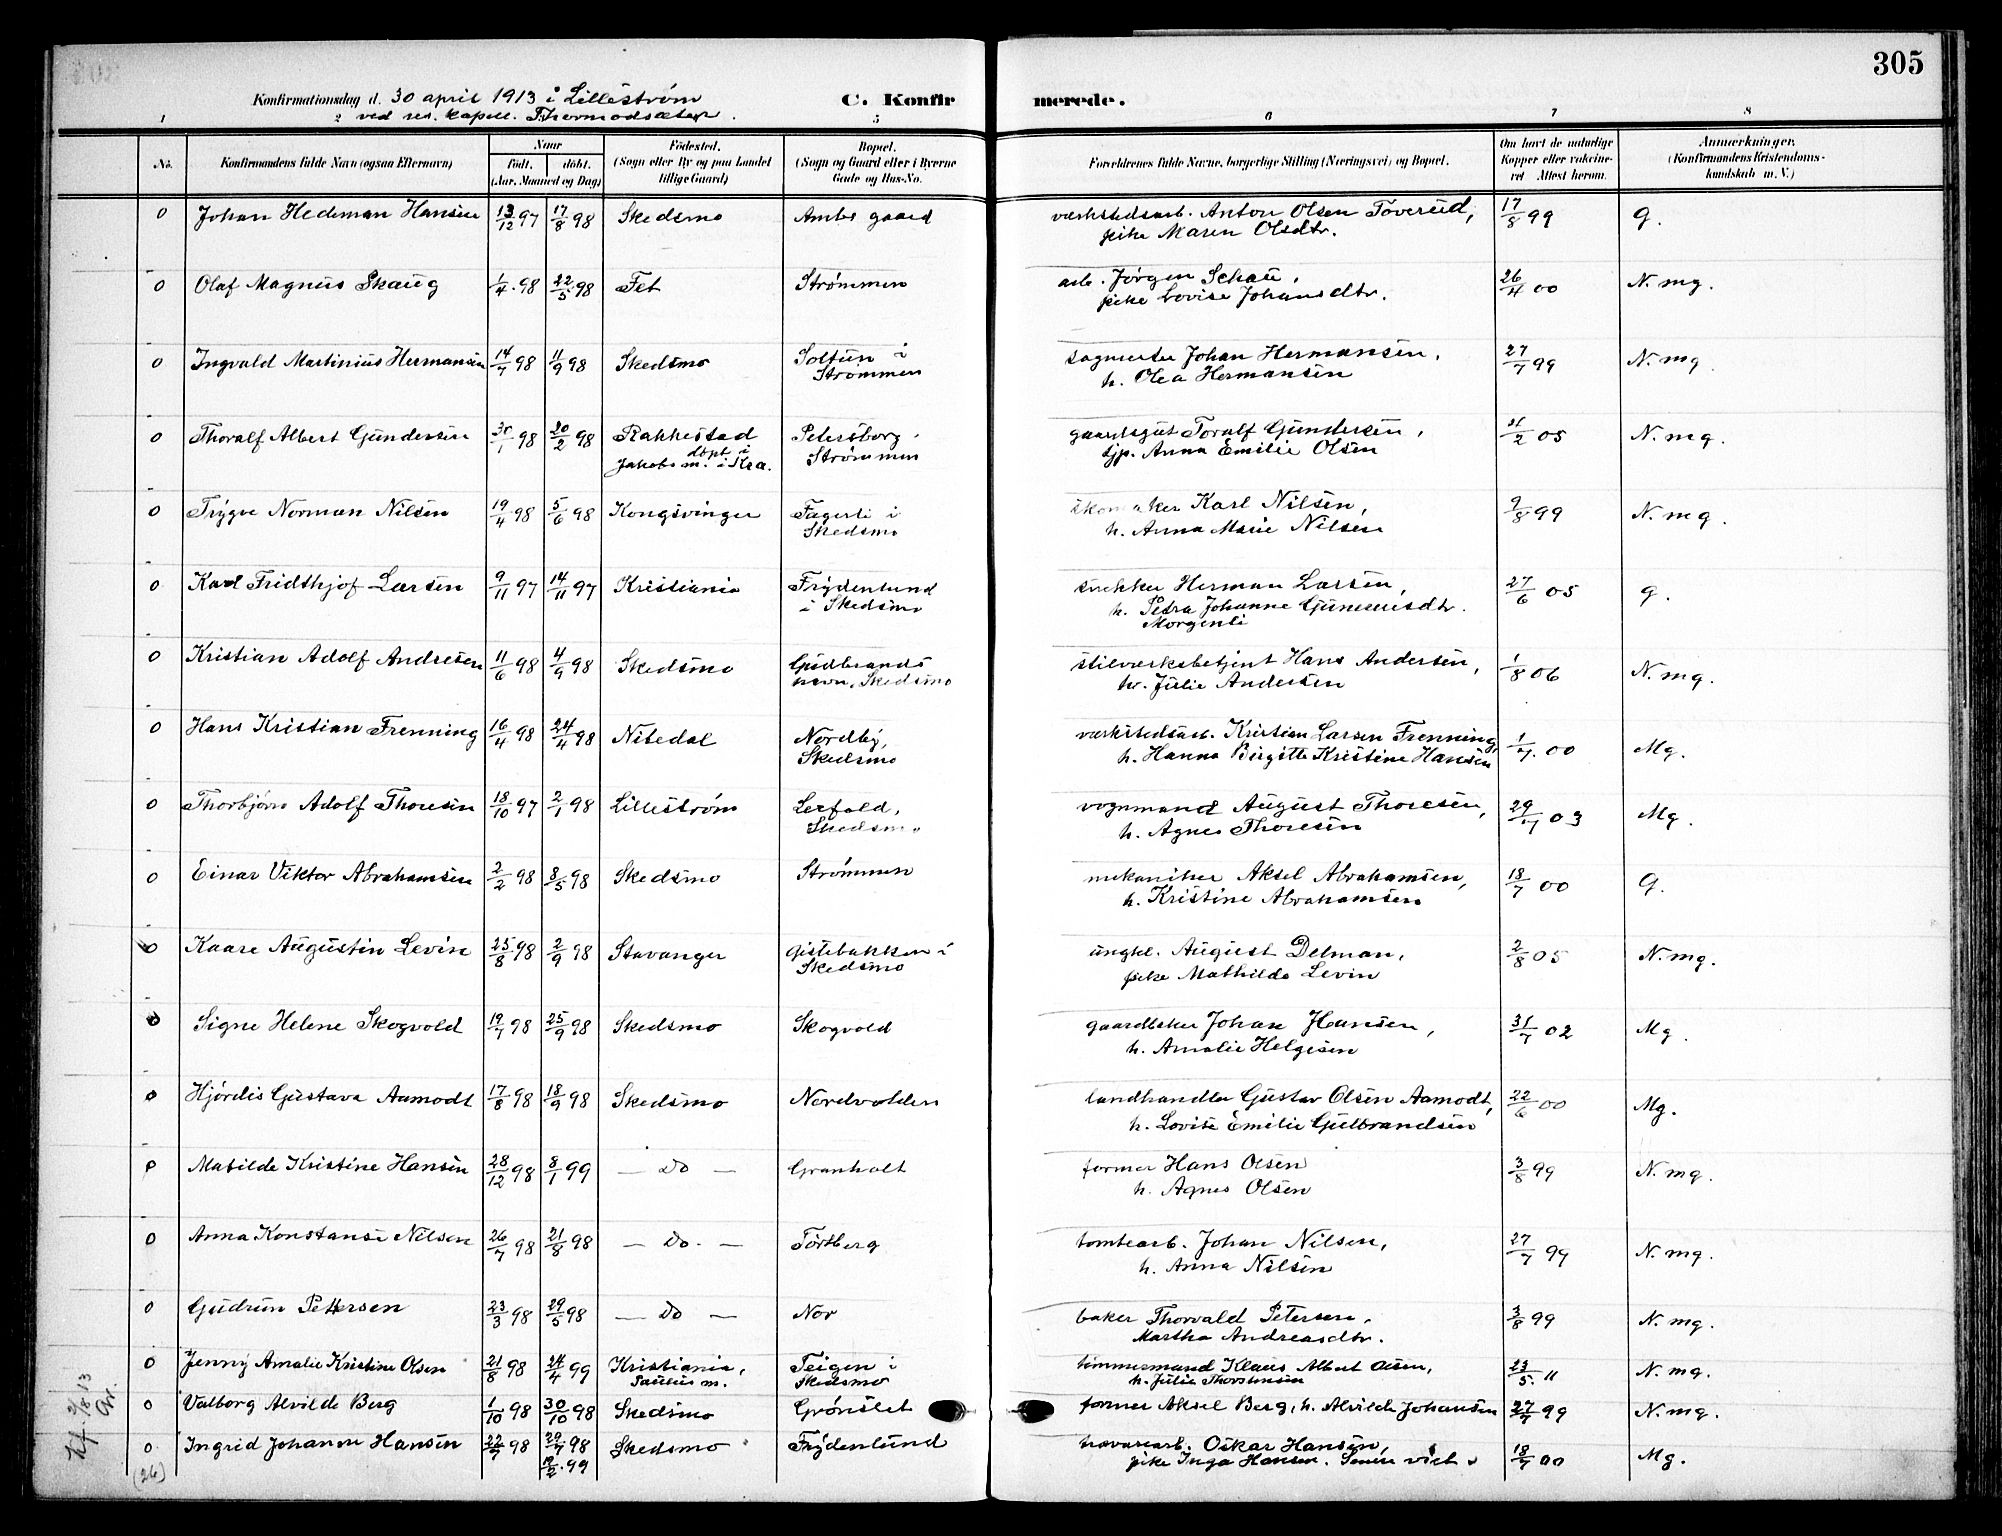 305
Konfirmationsdag d. 30 april 1913 i Lilleström C. Konfirmerede.
ved res. kapell. Thormodsæter.
1 2 5 6 7 8
No. Konfirmandens fulde Navn (ogsaa Efternavn) Naar født. døbt. (Aar, Maaned og Dag) Fødested. (Sogn eller By og paa Landet tillige Gaard) Bopæl. (Sogn og Gaard eller i Byerne Gade og Hus-No. Forældrenes fulde Navne, borgerlige Stilling (Næringsvei) og Bopæl. Om havt de naturlige Kopper eller vakcineret Attest herom. Anmærkninger. (Konfirmandens Kristendomskundskab m. V.)
0 Johan Hedeman Hansen 13/12 97 17/8 98 Skedsmo Ambs gaard værkstedsarb. Anton Olsen Toverud, 17/8 99 g.
pike Maren Olsdtr.
0 Olaf Magnus Skaug 1/4 98 22/5 98 Fet Strømmen arb. Jørgen Schau, 26/4 00 N. mg.
pike Lovise Johansdtr.
0 Ingvald Martinius Hermansen 14/7 98 11/9 98 Skedsmo Soltun i sagmester Johan Hermansen, 27/7 99 N. mg
Strømmen h. Olea Hermansen
0 Thoralf Albert Gundersen 30/1 98 20/2 98 Rakkestad Petersborg, gaardsgut Toralf Gundersen, /2 05 N. mg.
døpt i
Jakobs m. i Kra. Strømmen tjp. Anna Emilie Olsen
0 Trygve Norman Nilsen 19/4 98 5/6 98 Kongsvinger Fagerli i skomaker Karl Nilsen, 9/8 99 N. mg.
Skedsmo h. Anna Marie Nilsen
0 Karl Fridthjof Larsen 9/11 97 14/11 97 Kristiania Frydenlund snekker Herman Larsen, 27/6 05 g.
i Skedsmo h. Petra Johanne Gunerusdtr.
Morgenli
0 Kristian Adolf Andresen 11/6 98 4/9 98 Skedsmo Gudbrands stilværksbetjent Hans Andersen, 1/8 06 N. mg.
havn, Skedsmo h. Julie Andersen
0 Hans Kristian Frenning 16/4 98 24/4 98 Nitedal Nordby, værkstedsarb. Kristian Larsen Frenning, 1/7 00 Mg.
Skedsmo h. Hanna Birgitte Kristine Hansen
0 Thorbjørn Adolf Thoresen 18/10 97 2/1 98 Lilleström Leefald, vognmand August Thoresen, 29/7 03 Mg.
Skedsmo h. Agnes Thoresen
0 Einar Viktor Abrahamsen 2/2 98 8/5 98 Skedsmo Strømmen mekaniker Aksel Abrahamsen, 18/7 00 G.
h. Kristine Abrahamsen
0 Kaare Augustin Levin 25/8 98 2/9 98 Stavanger Gistebakken i ungkl. August Delman, 2/8 05 N. mg.
Skedsmo pike Mathilde Levin
0 Signe Helene Skogvold 19/7 98 25/9 98 Skedsmo Skogvold gaardbeker Johan Hansen, 31/7 02 Mg.
h. Amalie Helgesen
0 Hjørdis Gustava Aamodt 17/8 98 18/9 98 Skedsmo Nordvolden landhandler Gustav Olsen Aamodt, 22/6 00 Mg.
h. Lovise Emilie Gulbrandsen
0 Matilde Kristine Hansen 28/12 98 8/1 99 — Do — Granholt former Hans Olsen 3/8 99 N. mg.
h. Agnes Olsen
0 Anna Konstanse Nilsen 26/7 98 21/8 98 — Do. — Tørtberg tomtearb. Johan Nilsen, 27/7 99 N. mg.
h. Anna Nilsen
0 Gudrun Pettersen 23/3 98 29/5 98 — Do — Nor baker Thorvald Petersen, 3/8 99 N. mg.
Martha Andreasdtr.
0 Jenny Amalie Kristine Olsen 21/8 98 24/4 99 Kristiania, Teigen i tømmermand Klaus Albert Olsen, 23/5 11 N. mg.
Paulus m. Skedsmo h. Julie Thorstensen
0 Valborg Alvilde Berg 1/10 98 30/10 98 Skedsmo Grønslet former Aksel Berg, h. Alvilde Johansen 27/7 99 N. mg.
0 Ingrid Johanne Hansen 22/7 98 29/7 98 Skedsmo Frydenlund Oskar Hansen, 18/7 00 Mg.
12/2 99 pike Inga Hansen.
(26)